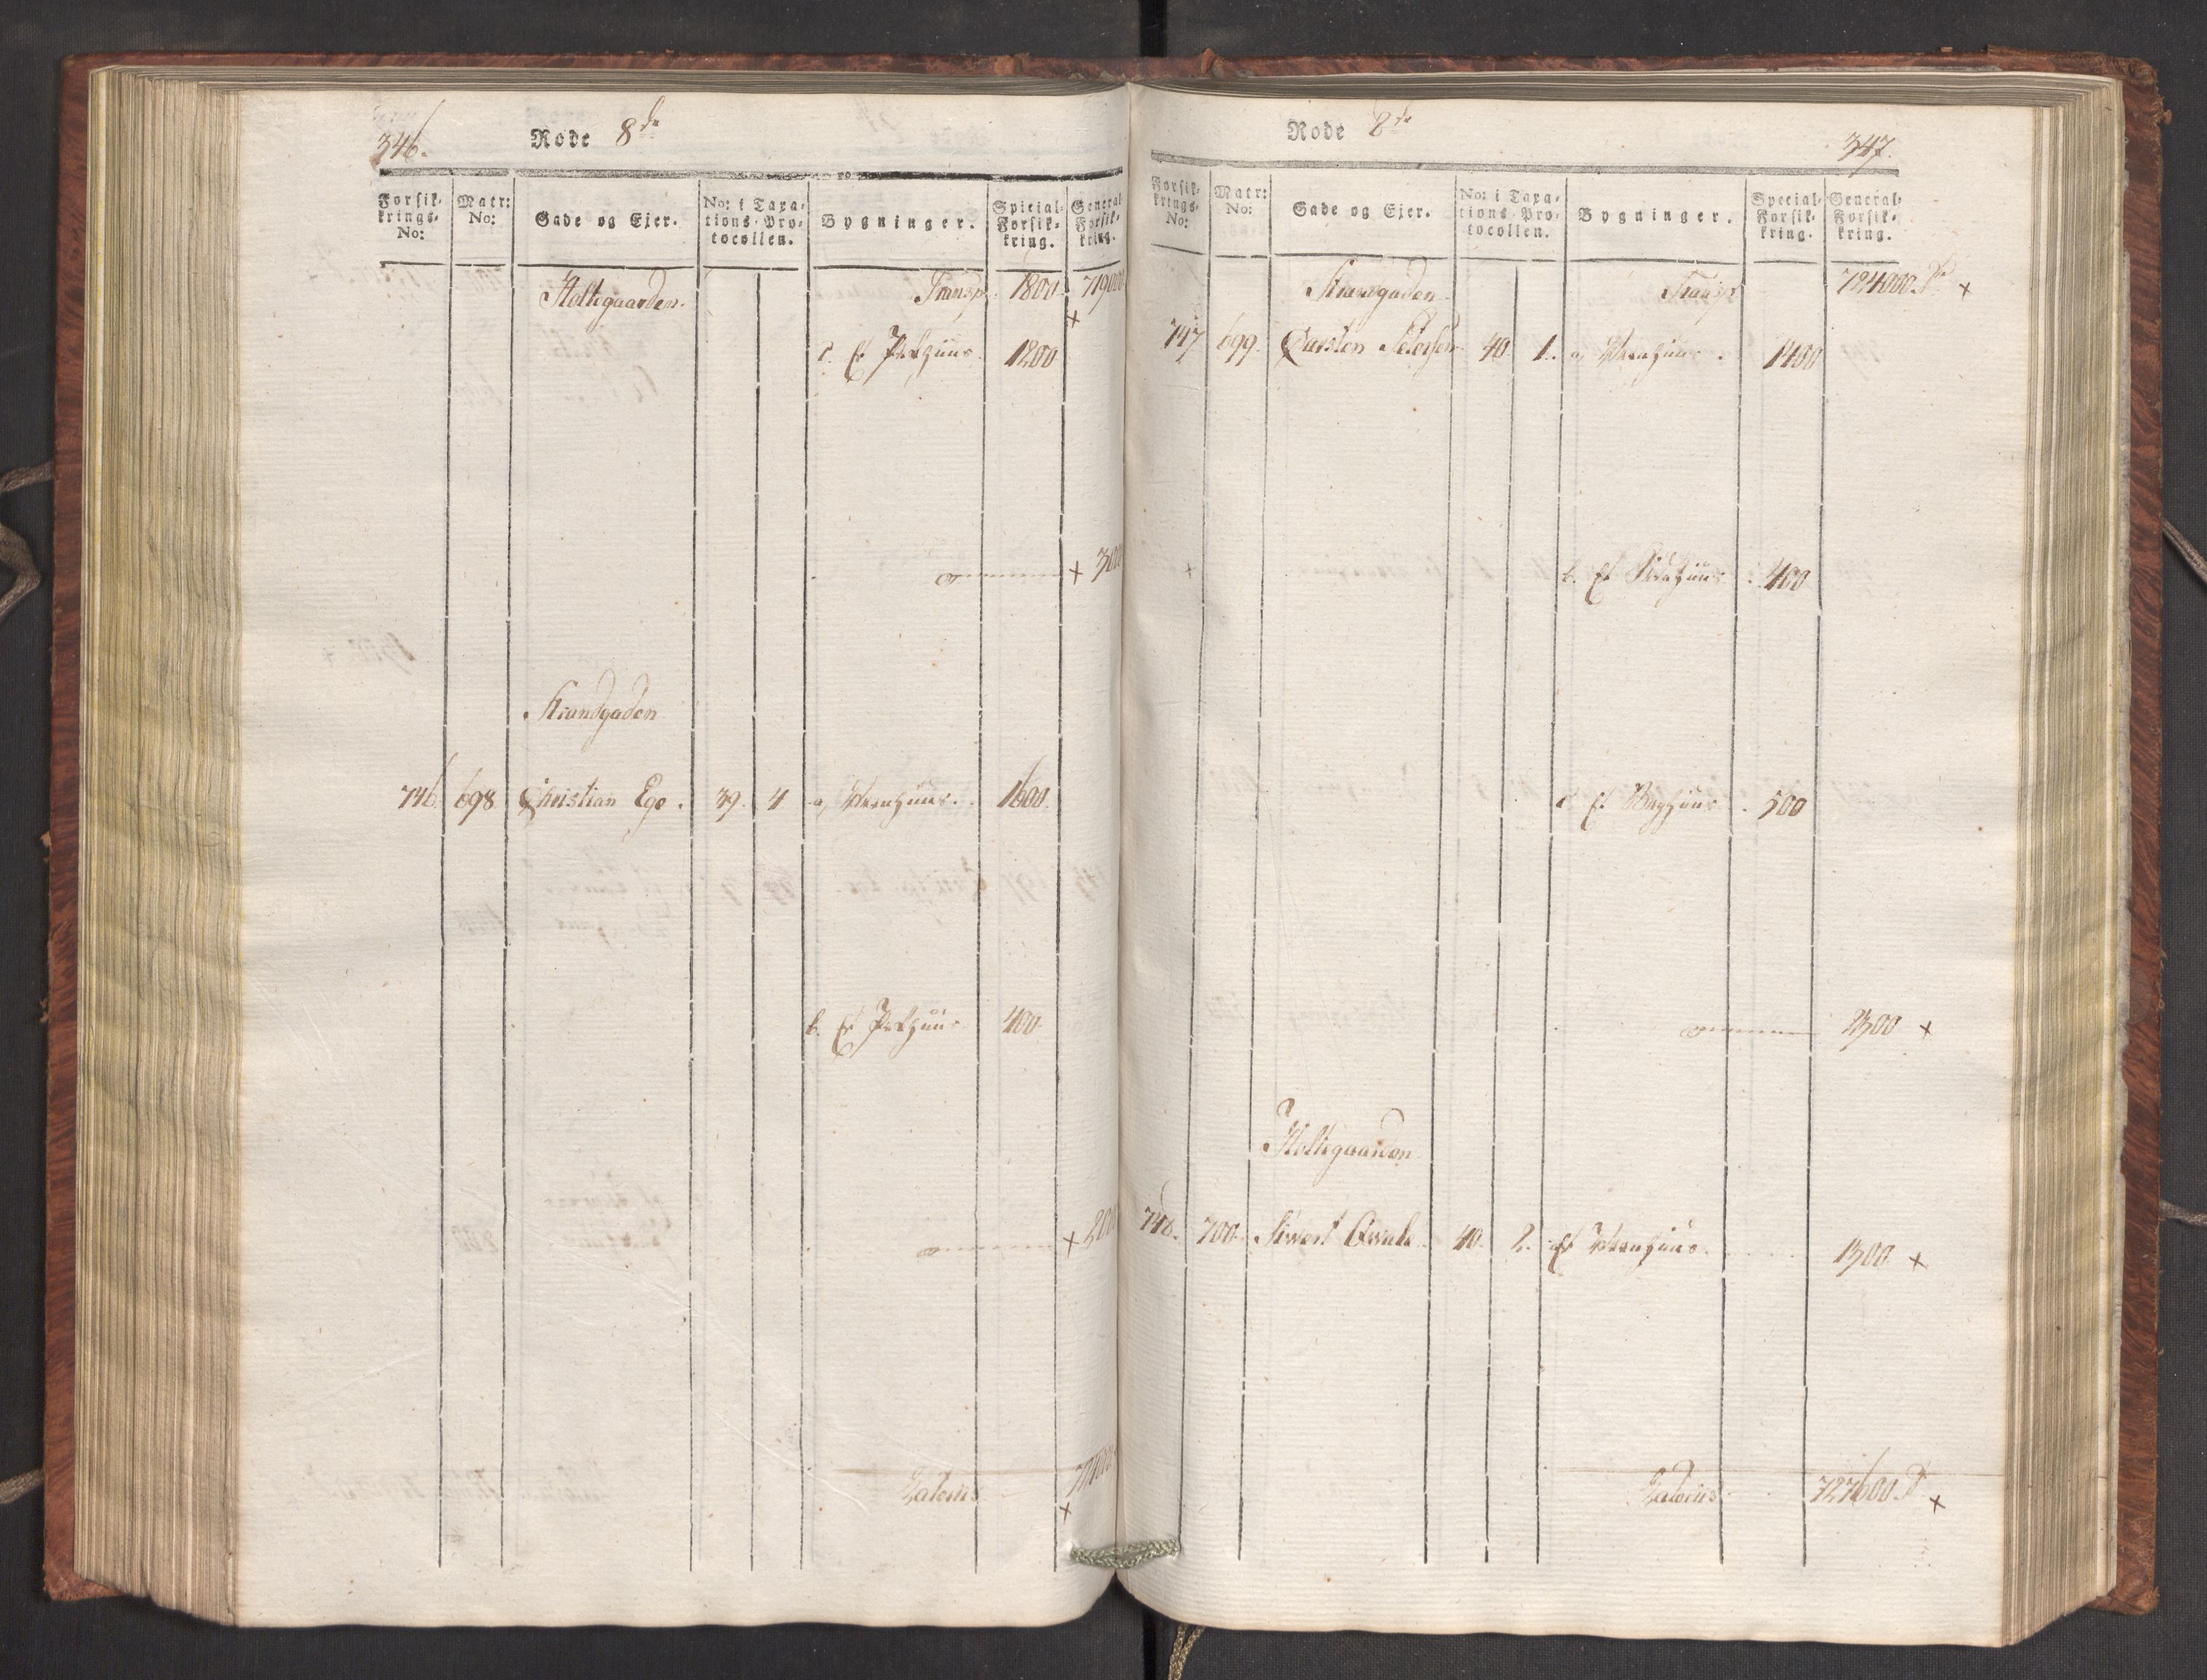 346.
Rode 8de
Forsik-krings-No:
Matr: No:
Gade og Ejer.
No: i Taxa-tions-Pro-tocollen.
Bygninger.
Special-Forsik-kring.
General-Forsik-kring.
Holtegaarden.
Transp: 1800. 719000
c. Et 1200
3000
Strandgaden
746. 698 Christian Ege. 39. 4 a, Vaanhuus. 1600.
b. Et 400.
Laterus
347.
Rode 8de
Forsik-krings-No:
Matr: No:
Gade og Ejer.
No: i Taxa-tions-Pro-tocollen.
Bygninger.
Special-Forsik-kring.
General-Forsik-kring.
Strandgaden Transp: 724000.
747 699. Carsten Petersen 40. 1. a, Vaanhuus. 1400
b. Et 400
c Et 500
2300
Holtegaarden
748. 700. 40. 2. Et Vaanhuus. 1300
Laterus 727600.